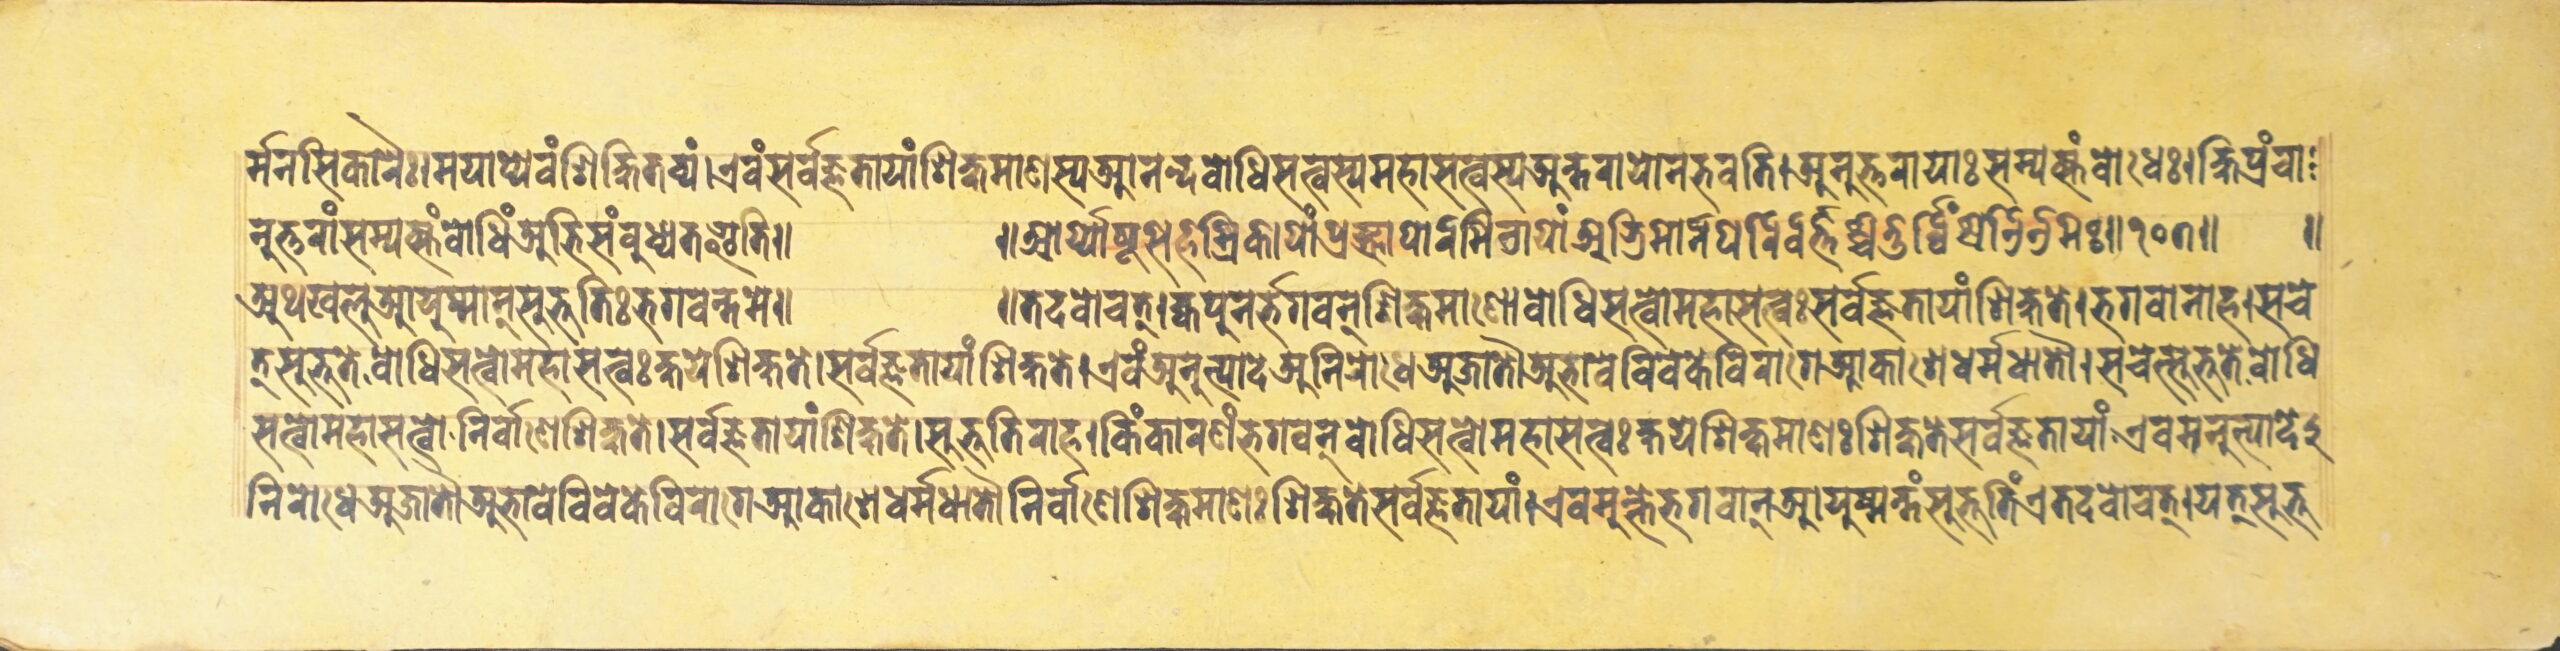 र्मनसिकारैः।मयाप्येवंशिक्षितव्यं।एवंसर्वज्ञतायांशिक्षमाणस्यआनन्दबोधिसत्वस्यमहासत्वस्यअन्तरायोनभवति।अनुत्तरायाःसम्यक्संबोधेः।क्षिप्रंचा
नुत्तरांसम्यक्संबोधिंअभिसंबुध्यतइति॥ ॥आर्य्याष्टसहस्रिकायांप्रज्ञापारमितायांअभिमानपरिवर्त्तश्चतुर्व्विंशतितमः॥ ॥
अथखलुआयुष्मान्सुभूतिःभगवन्तमे॥ ॥तदवोचत्।क्वपुनर्भगवन्शिक्षमाणोबोधिसत्वोमहासत्वःसर्वज्ञतायांशिक्षते।भगवानाह।सचे
त्सुभूतेबोधिसत्वोमहासत्वःक्षयेशिक्षते।सर्वज्ञतायांशिक्षते।एवंअनुत्पादेअनिरोधेअजातौअभावेविवेकेविरागेआकाशेधर्मधातौ।सचेत्सुभूतेबोधि
सत्वोमहासत्वोनिर्वाणेशिक्षते।सर्वज्ञतायांशिक्षते।सुभूतिराह।किंकारणंभगवन्बोधिसत्वोमहासत्वःक्षयेशिक्षमाणःशिक्षतेसर्वज्ञतायां।एवमनुत्पादेऽ
निरोधेअजातौअभावेविवेकेविरागेआकाशेधर्मधातौनिर्वाणेशिक्षमाणःशिक्षतेसर्वज्ञतायां।एवमुक्तेभगवान्आयुष्मन्तंसुभूतिंएतदवोचत्।यत्सुभू